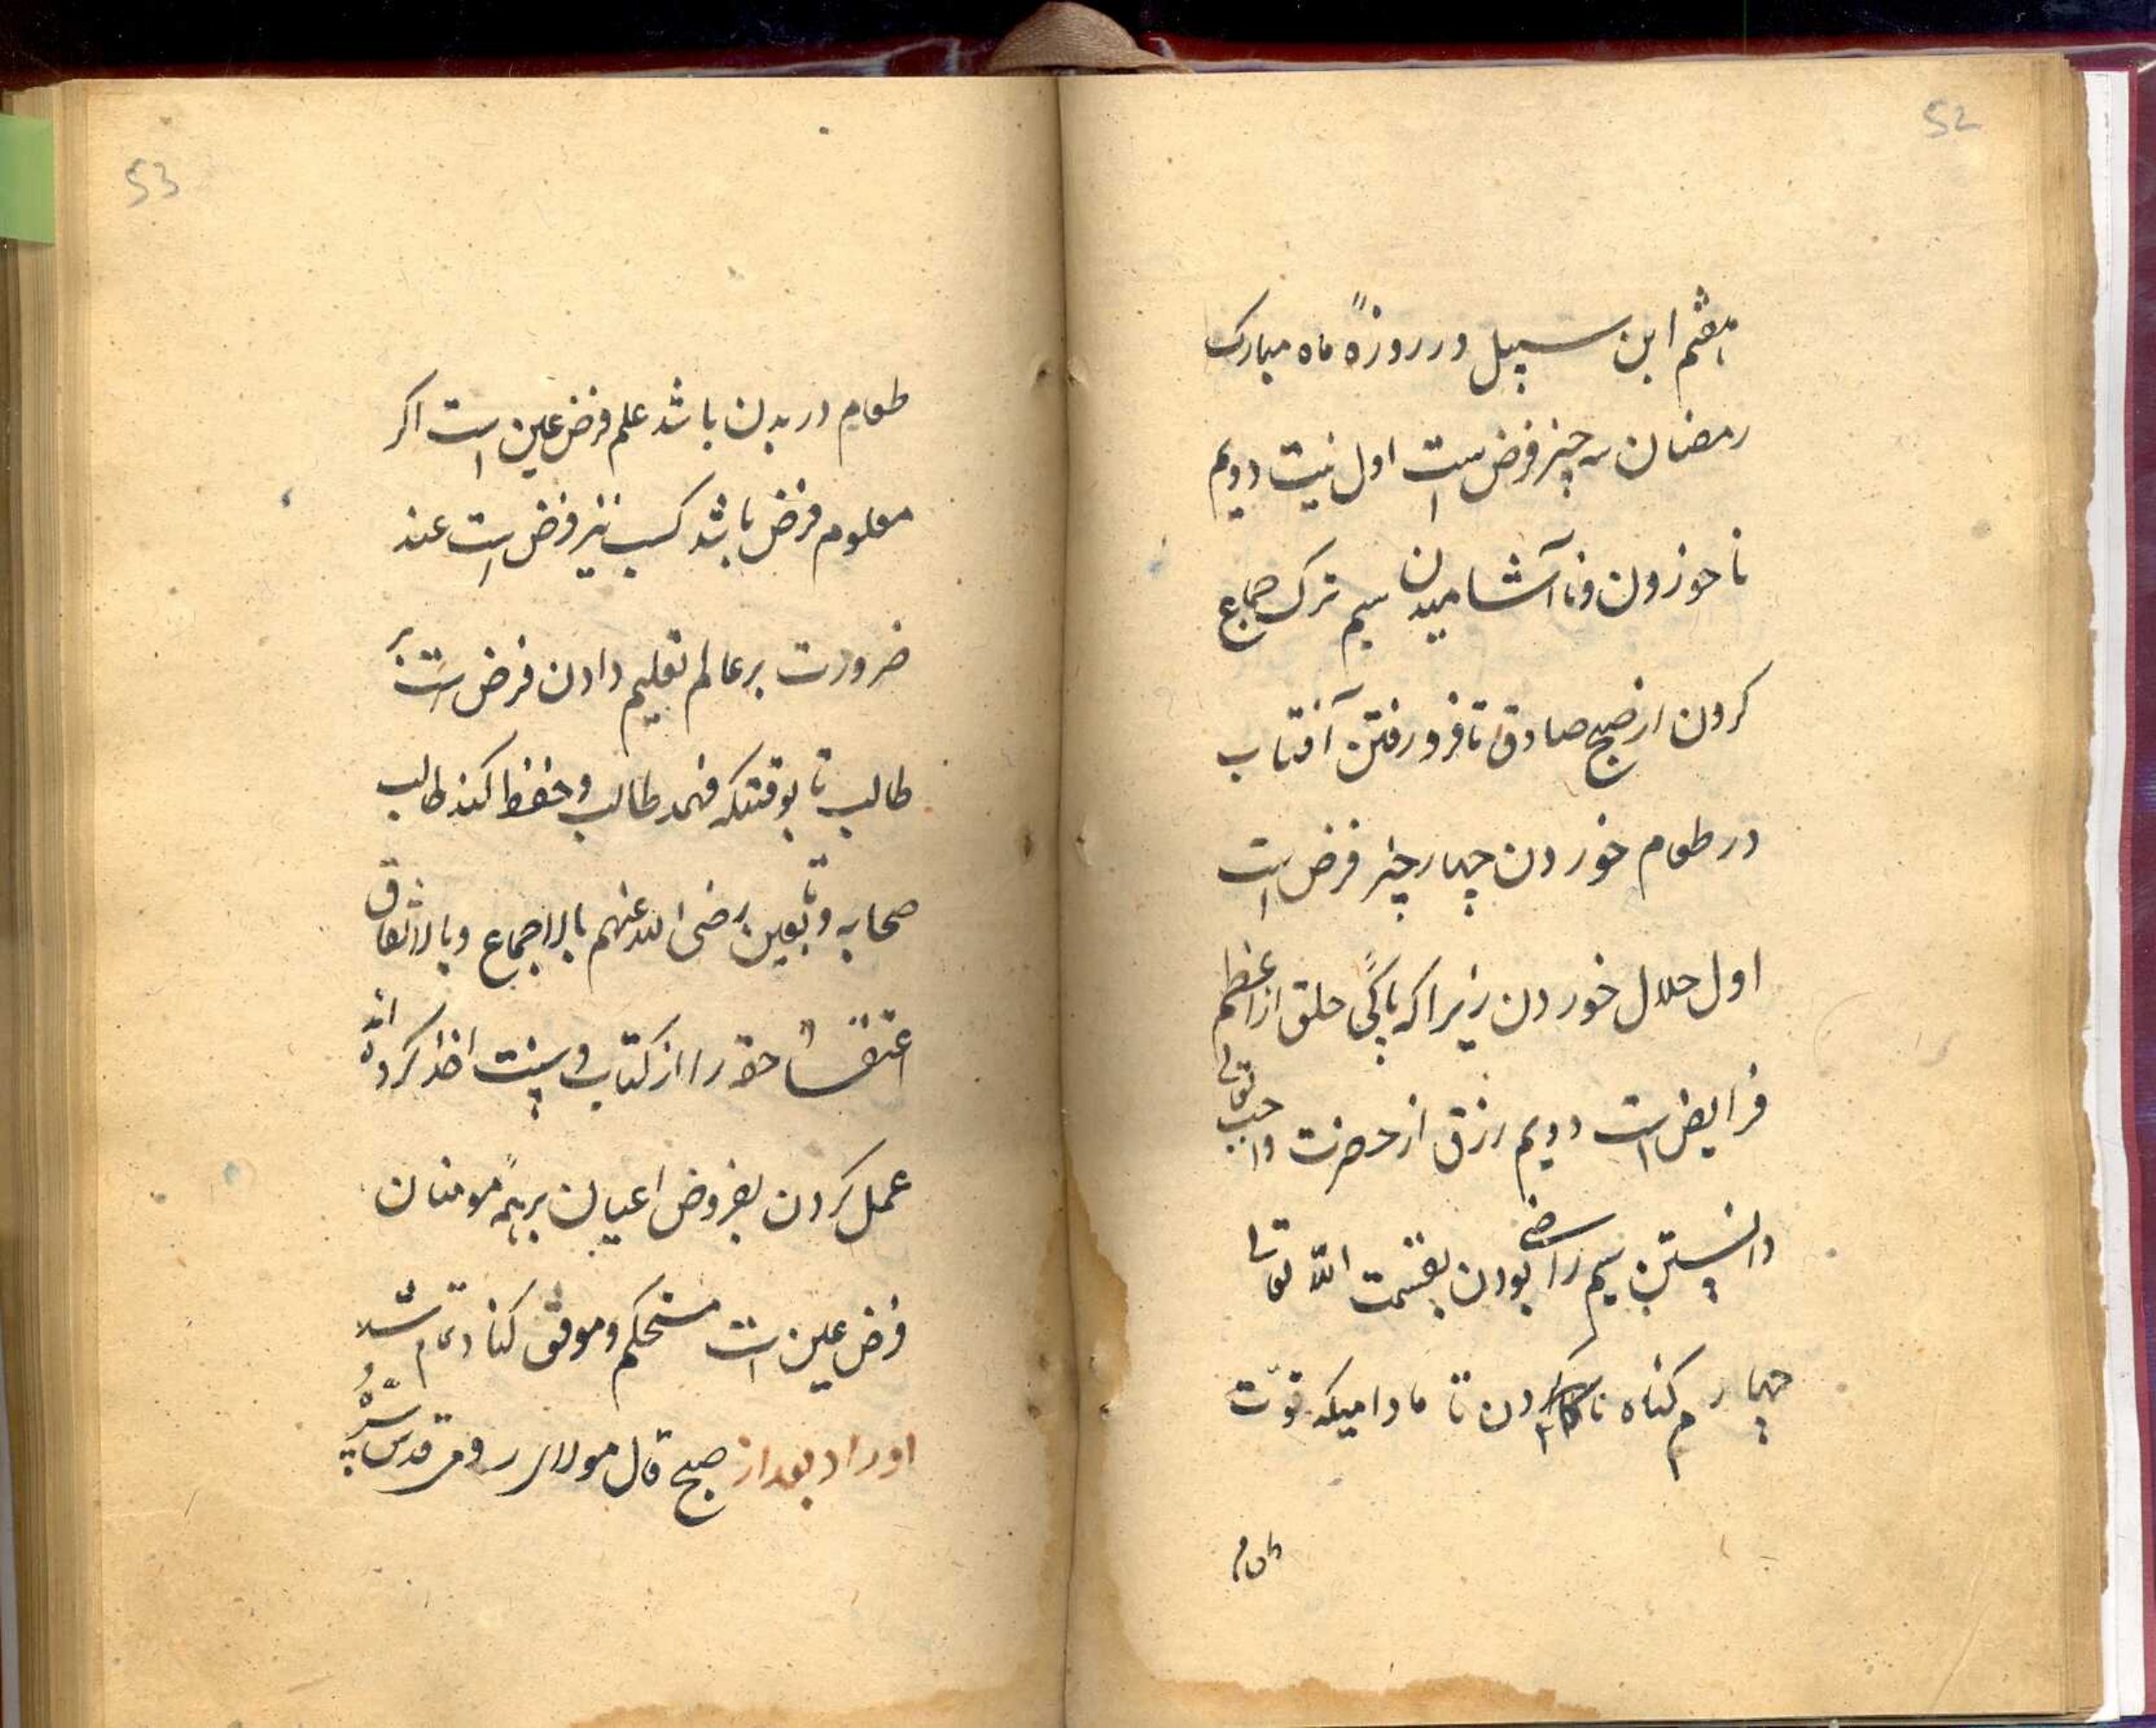 52
هفتم ابن سبیل در روزهٔ ماه مبارک
رمضان سه چیز فرض است اول نیت دویم
ناخوردن و ناآشامیدن سیم ترک جماع
کردن از صبح صادق تا فرو رفتن آفتاب
در طعام خوردن چهار چیز فرض است
اول حلال خوردن زیرا که پاکی حلق از اعظم
فرایض است دویم رزق از حضرت واجب تعالی
دانستن سیم راضی بودن بقسمت الله تعالی
چهارم گناه ناکردن تا مادامیکه قوّت
طعام
53
طعام در بدن باشد علم فرض عین است اگر
معلوم فرض باشد کسب نیز فرض است عند
ضرورت بر عالم تعلیم دادن فرض است بر
طالب تا بوقتیکه فهمد طالب و حفظ کند طالب
صحابه و تابعین رضی الله عنهم بالاجماع و بالاتفاق
حقه را از کتاب و سنت اخذ کرده اند
عمل کردن بفروض اعیان بر همهٔ مومنان
فرض عین است مستحکم و موثق کناد تمام شد
اوراد بعد از صبح قال مولای رومی قدس سرّهُ